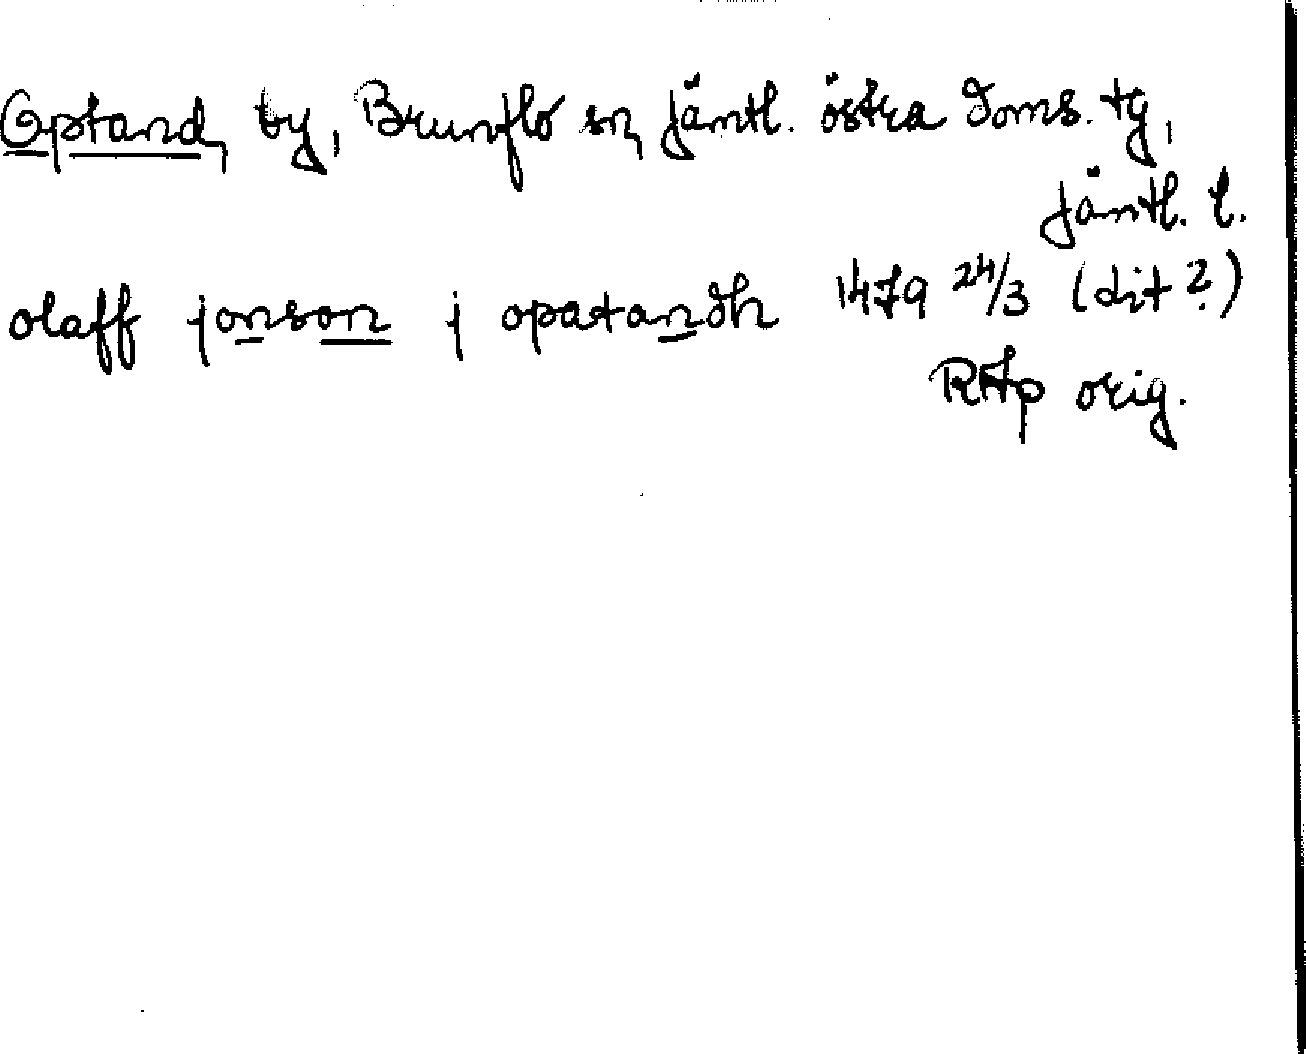 Optand, by, Brunflo sn, Jämtl. östra doms. tg,
Jämtl. l.
olaff jonson j opatandh 1479 24/3 (dit?)
RAp orig.